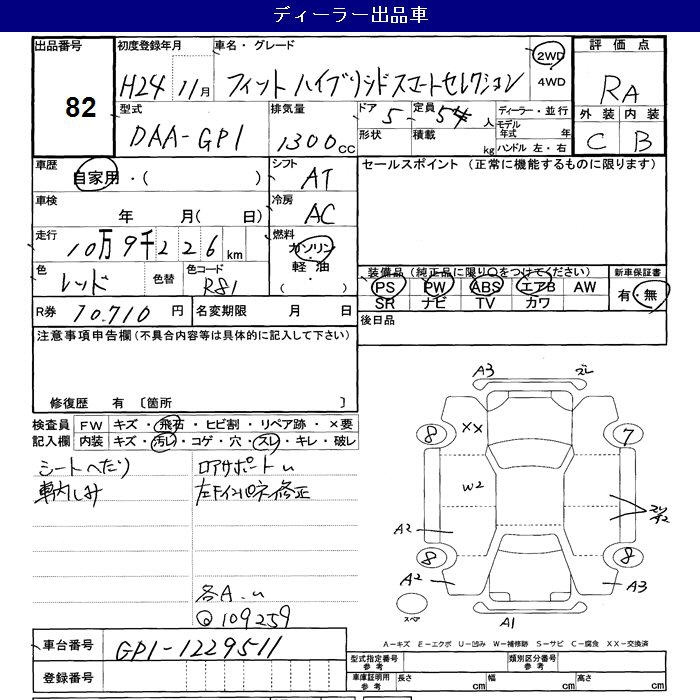 ディーラー出品車
出品番号
82
初度登録年月
H24 11月
車名・グレード
フィット ハイブリッドスマートセレクション
2WD
4WD
評価点
RA
外装 内装
C B
型式
DAA-GP1
排気量
1300cc
ドア 5
定員 5人
形状
積載 kg
ディーラー・並行
モデル年式 年
ハンドル 左・右
車歴
自家用・( )
シフト
AT
セールスポイント (正常に機能するものに限ります)
車検
年 月( 日)
冷房
AC
走行
10万9千226km
燃料
ガソリン
軽・油
( )
色
レッド
色替
色コード
R81
装備品 (純正品に限り○をつけてください)
PS PW ABS エアB AW
SR ナビ TV カワ
新車保証書
有・無
R券 10,710円
名変期限 月 日
後日品
注意事項申告欄(不具合内容等は具体的に記入して下さい)
修復歴 有 〔箇所 〕
検査員記入欄
FW キズ・飛石・ヒビ割・リペア跡・×要
内装 キズ・汚レ・コゲ・穴・スレ・キレ・破レ
シートへたり
車内しみ
ロアサポートU
左Fインパネ修正
各A.U
Q 109259
A3 ズレ
8 XX 7
W2
A2
8 8
A2 A3
スペア
A1
A-キズ E-エクボ U-凹み W-補修跡 S-サビ C-腐食 XX-交換済
車台番号 GP1-1229511
登録番号
型式指定番号 参考
類別区分番号 参考
車庫証明用 参考 長さ cm 幅 cm 高さ cm